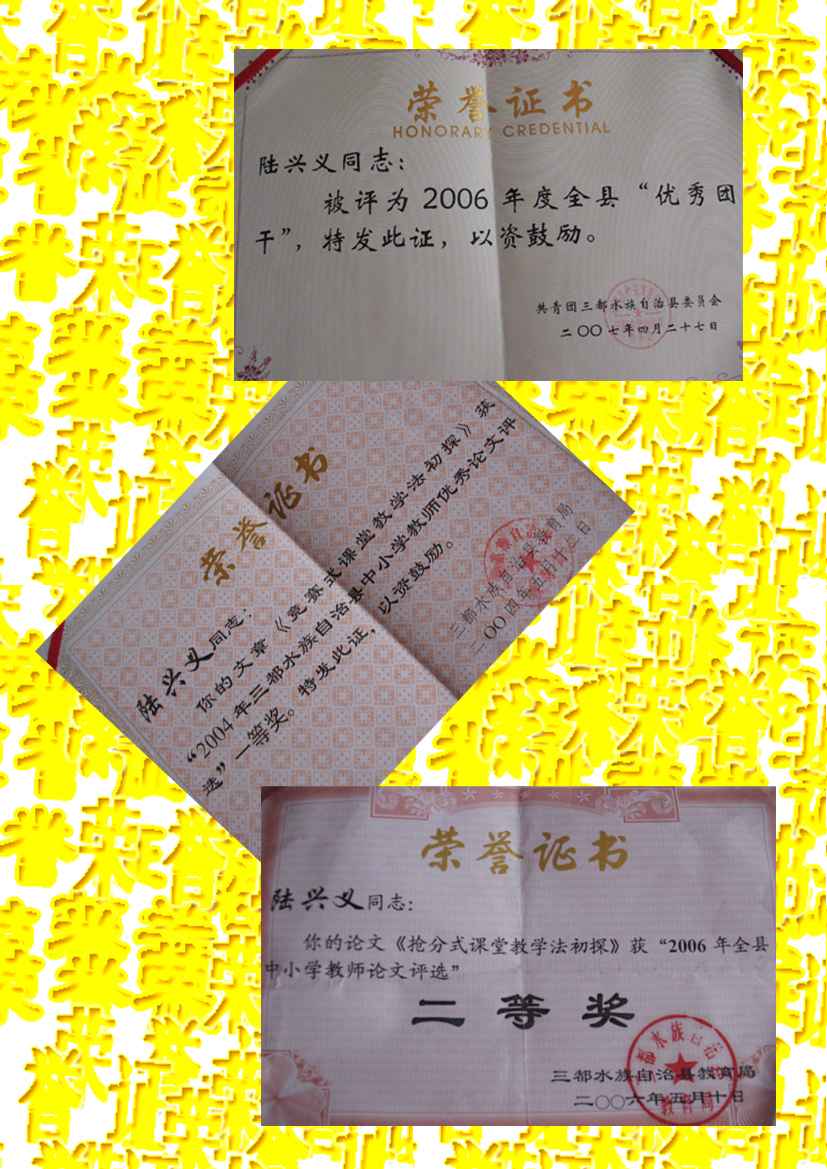 荣誉证书
HONORARY CREDENTIAL
陆兴义同志：
被评为 2006 年度全县“优秀团
干”，特发此证，以资鼓励。
共青团三都水族自治县委员会
二〇〇七年四月二十七日
荣誉证书
陆兴义同志：
你的文章《竞赛式课堂教学法初探》获
“2004 年三都水族自治县中小学教师优秀论文评
选”一等奖。特发此证，以资鼓励。
三都水族自治县教育局
二〇〇四年五月十二日
荣誉证书
陆兴义同志：
你的论文《抢分式课堂教学法初探》获“2006 年全县
中小学教师论文评选”
二等奖
三都水族自治县教育局
二〇〇六年五月十日